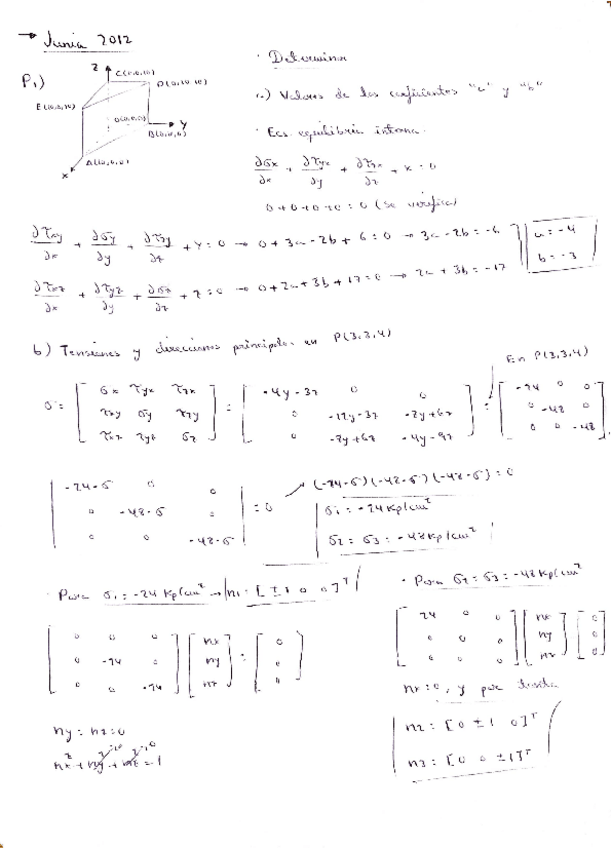 → Junio 2012
P1)
Z
C(0,0,10)
D(0,10,10)
E(10,0,10)
O(0,0,0)
Y
A(10,0,0)
X
· Determinar
a) Valores de los coeficientes "a" y "b"
· Ecs. equilibrio interno.
∂σx/∂x + ∂τyx/∂y + ∂τzx/∂z + X = 0
0+0+0+0 = 0 (se verifica)
∂τxy/∂x + ∂σy/∂y + ∂τzy/∂z + Y = 0 → 0 + 3a - 2b + 6 = 0 → 3a - 2b = -6
a = -4
∂τxz/∂x + ∂τyz/∂y + ∂σz/∂z + Z = 0 → 0 + 2a + 3b + 17 = 0 → 2a + 3b = -17
b = -3
b) Tensiones y direcciones principales en P(3,3,4)
En P(3,3,4)
σ = [ σx τyx τzx ; τxy σy τzy ; τxz τyz σz ] = [ -4y-3z 0 0 ; 0 -12y-3z -8y+6z ; 0 -8y+6z -4y-9z ] = [ -24 0 0 ; 0 -48 0 ; 0 0 -48 ]
| -24-σ 0 0 ; 0 -48-σ 0 ; 0 0 -48-σ | = 0 → (-24-σ)(-48-σ)(-48-σ) = 0
σ1 = -24 Kp/cm²
σ2 = σ3 = -48 Kp/cm²
· Para σ1 = -24 Kp/cm² → n1 = [±1 0 0]ᵀ
[ 0 0 0 ; 0 -24 0 ; 0 0 -24 ] [ nx ; ny ; nz ] = [ 0 ; 0 ; 0 ]
ny = nz = 0
nx² + ny² + nz² = 1
· Para σ2 = σ3 = -48 Kp/cm²
[ 24 0 0 ; 0 0 0 ; 0 0 0 ] [ nx ; ny ; nz ] [ 0 ; 0 ; 0 ]
nx = 0, y por tanto
n2 = [0 ±1 0]ᵀ
n3 = [0 0 ±1]ᵀ